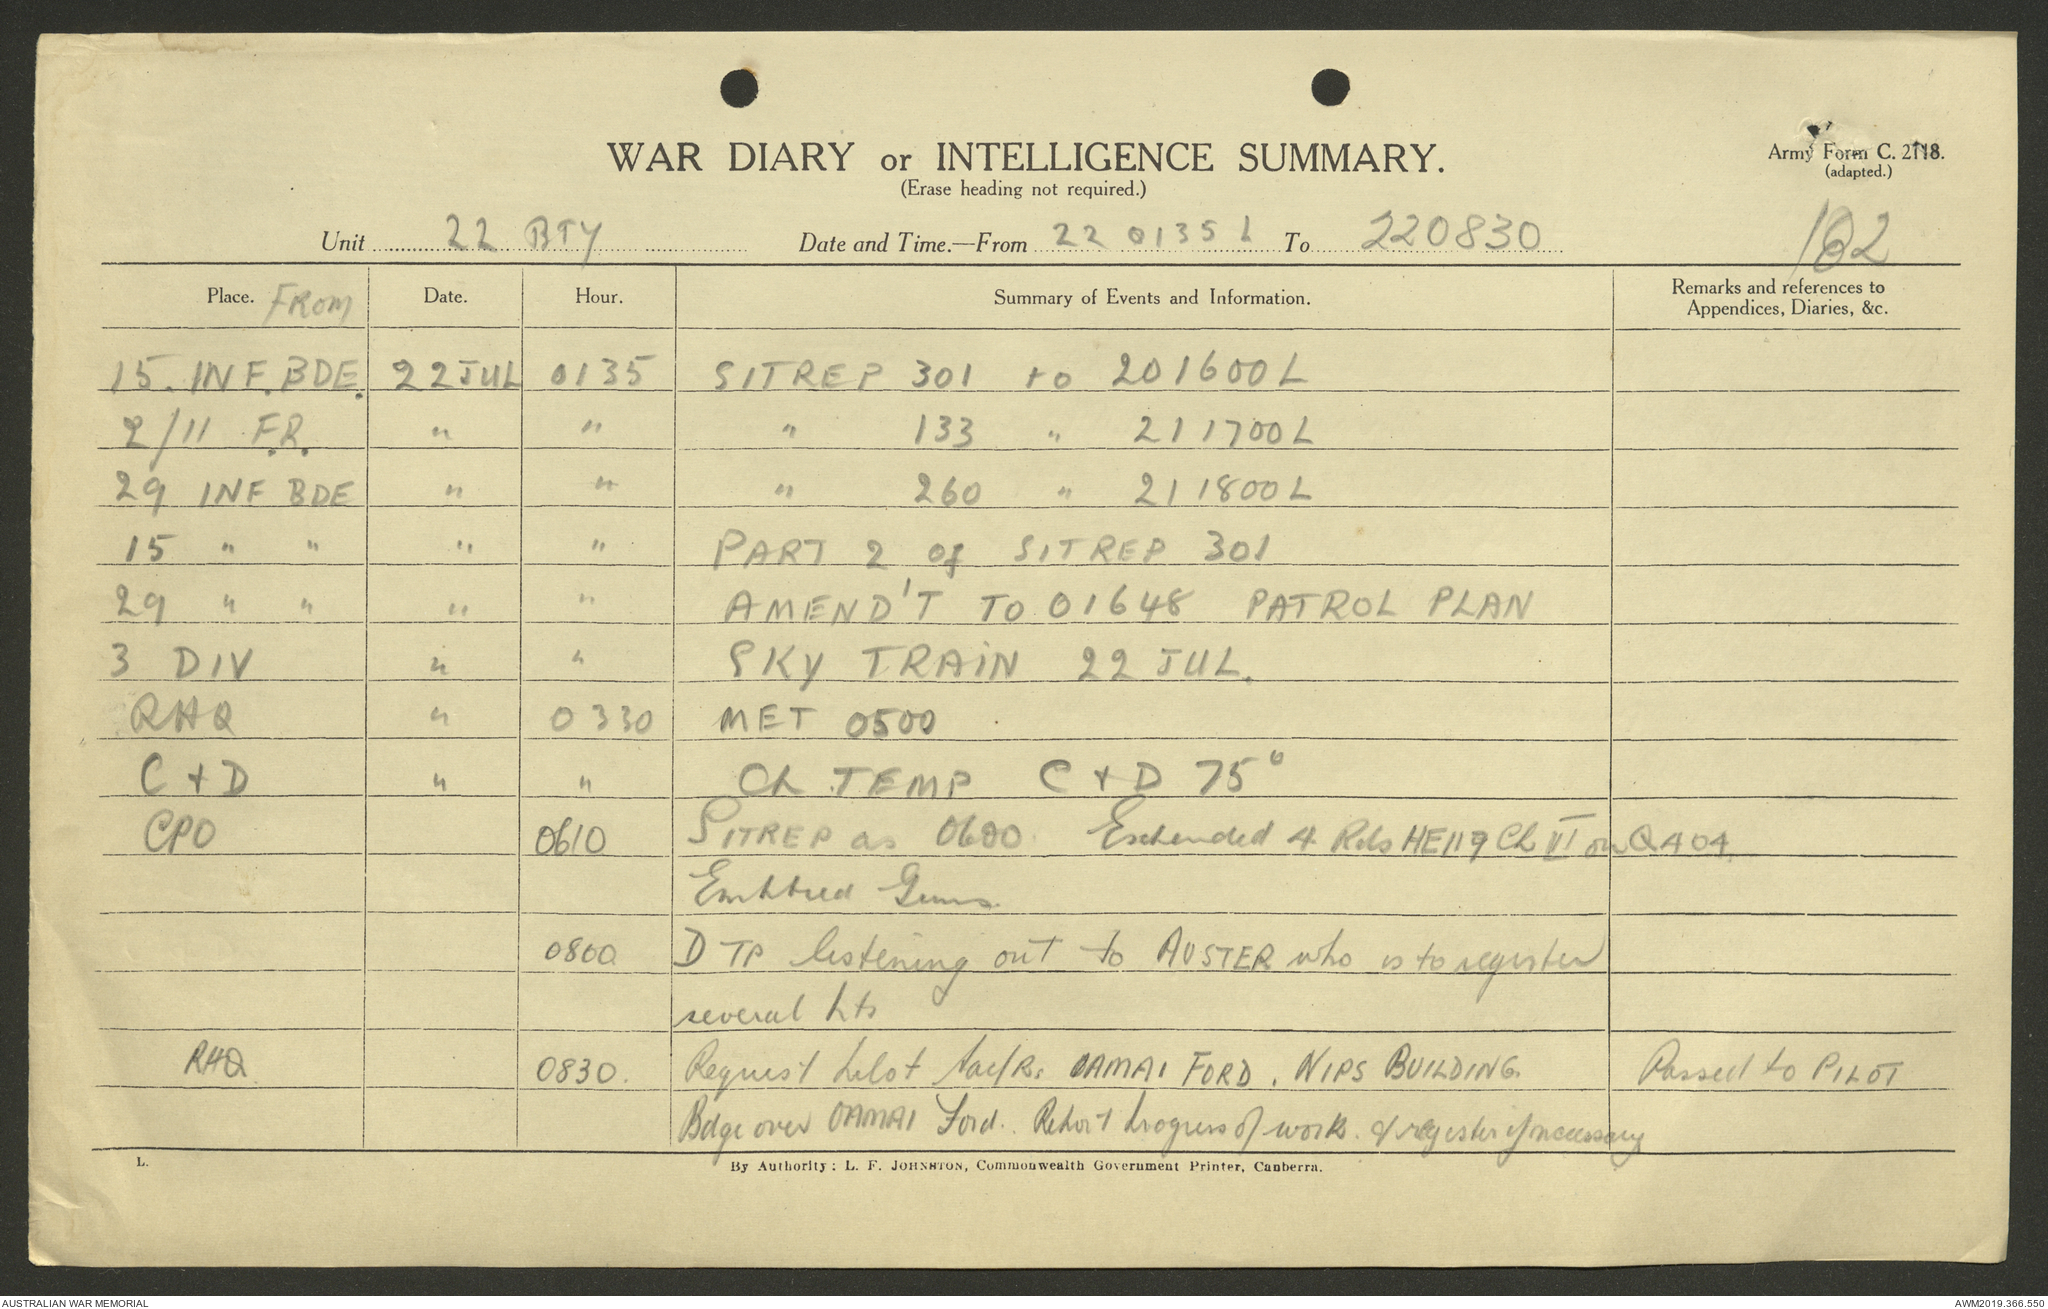 WAR DIARY or INTELLIGENCE SUMMARY.
(Erase heading not required.)
Army Form C. 2118.
(adapted.)
182
Unit 22 BTY Date and Time.—From 22 0135 L To 220830
Place. FROM Date. Hour. Summary of Events and Information. Remarks and references to Appendices, Diaries, &c.
15. INF. BDE. 22 JUL 0135 SITREP 301 to 201600L
2/11 F.R. " " " 133 " 211700L
29 INF BDE " " " 260 " 211800L
15 " " " " PART 2 of SITREP 301
29 " " " " AMEND'T TO 01648 PATROL PLAN
3 DIV " " SKY TRAIN 22 JUL.
RHQ " 0330 MET 0500
C + D " " Ch TEMP C + D 75°
CPO 0610 SITREP as 0600. Expended 4 Rds HE119 Ch III on QA04.
Emptied Guns.
0800 D TP listening out to AUSTER who is to register
several pts
RHQ 0830. Request pilot tac/R. OAMAI FORD. NIPS BUILDING Passed to PILOT
Bdge over OAMAI Ford. Report progress of work. & register if necessary
L. By Authority: L. F. JOHNSTON, Commonwealth Government Printer, Canberra.
AUSTRALIAN WAR MEMORIAL AWM2019.366.550